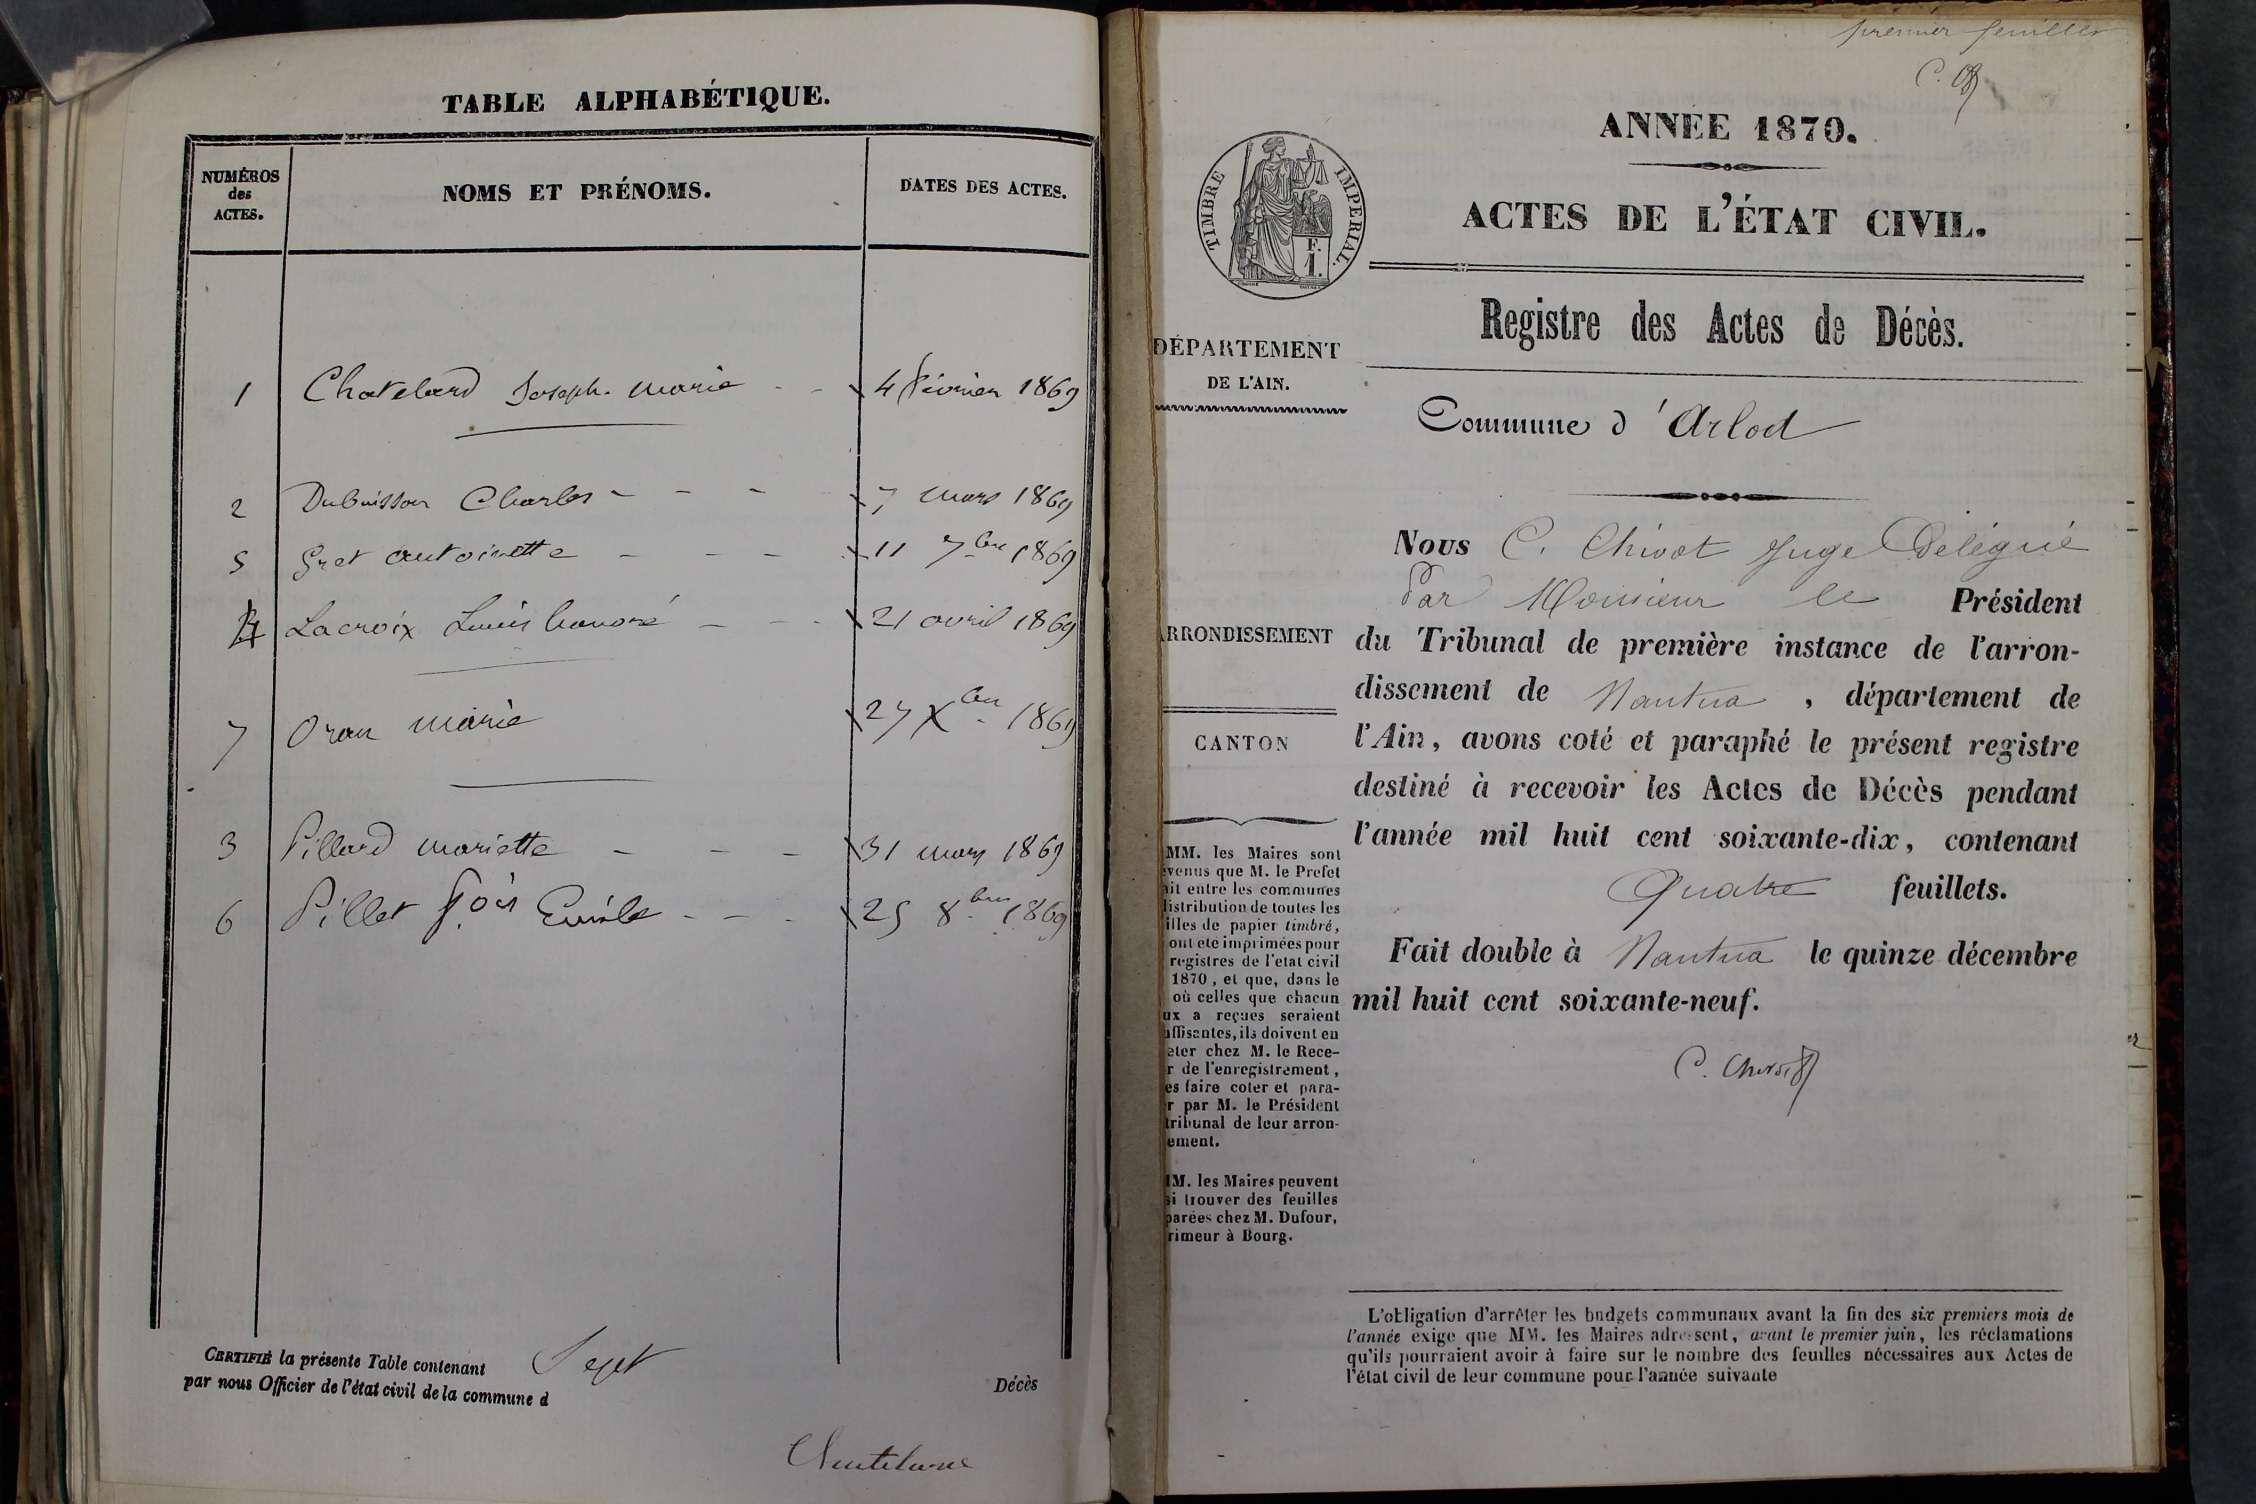 TABLE ALPHABÉTIQUE.
NUMÉROS
des
ACTES.
NOMS ET PRÉNOMS.
DATES DES ACTES.
1 Chatelard Joseph-Marie - - 4 février 1869
2 Dubuisson Charles - - - 7 mars 1869
5 Gret antoinette - - - 11 7bre 1869
4 Lacroix Louis honoré - - - 21 avril 1869
7 Oran Marie 27 Xbre 1869
3 Pillard Mariette - - - 31 mars 1869
6 Pillet fçois Emile - - - 25 8bre 1869
CERTIFIÉ la présente Table contenant Sept
Décès
par nous Officier de l'état civil de la commune d
premier feuillet
ANNÉE 1870.
ACTES DE L'ÉTAT CIVIL.
TIMBRE IMPERIAL.
F.
1.
Registre des Actes de Décès.
DÉPARTEMENT
DE L'AIN.
Commune d'Arlod
Nous C. Chivot Juge Délégué
Par Monsieur le Président
du Tribunal de première instance de l'arron-
dissement de Nantua, département de
l'Ain, avons coté et paraphé le présent registre
destiné à recevoir les Actes de Décès pendant
l'année mil huit cent soixante-dix, contenant
Quatre feuillets.
Fait double à Nantua le quinze décembre
mil huit cent soixante-neuf.
C. Chivot
RRONDISSEMENT
CANTON
MM. les Maires sont
venus que M. le Prefet
it entre les communes
istribution de toutes les
illes de papier timbré,
ont été imprimées pour
registres de l'etat civil
1870, et que, dans le
où celles que chacun
ux a reçues seraient
ffisantes, ils doivent en
eter chez M. le Rece-
r de l'enregistrement,
es faire coter et para-
r par M. le Président
tribunal de leur arron-
ement.
M. les Maires peuvent
si trouver des feuilles
parées chez M. Dufour,
rimeur à Bourg.
L'obligation d'arrêter les budgets communaux avant la fin des six premiers mois de
l'année exige que MM. les Maires adressent, avant le premier juin, les réclamations
qu'ils pourraient avoir à faire sur le nombre des feuilles nécessaires aux Actes de
l'état civil de leur commune pour l'année suivante